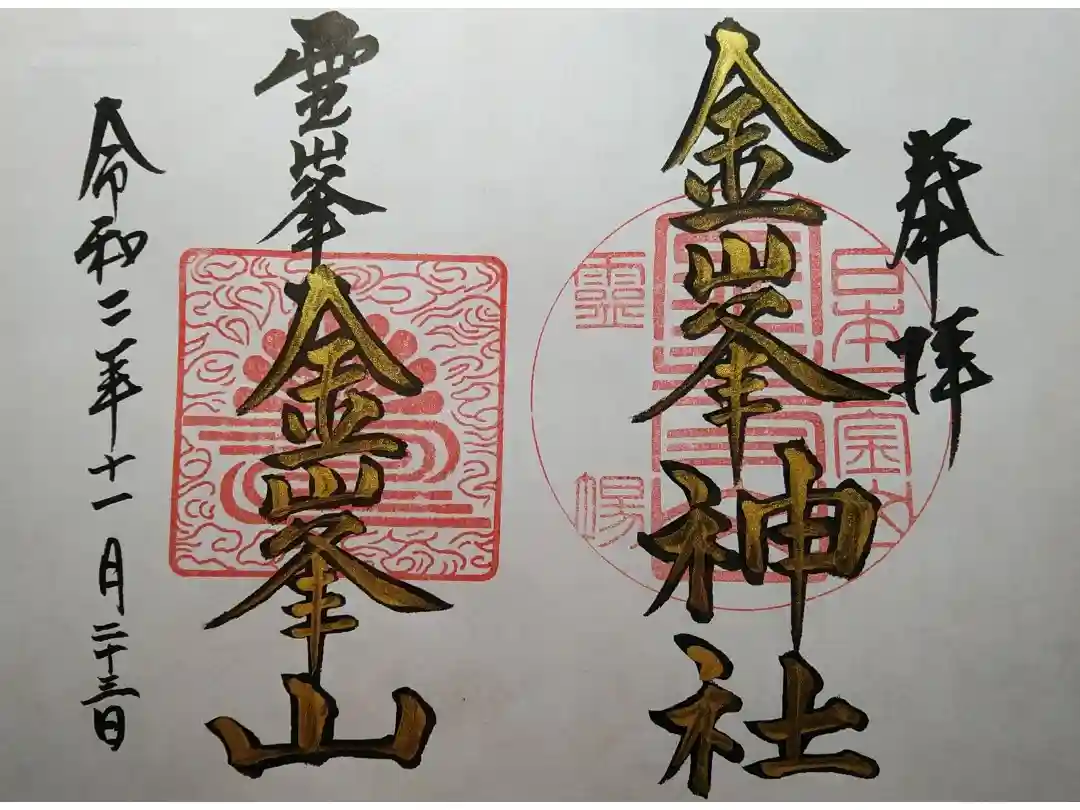 奉拝
金峯神社
日本三金山
霊場
霊峯
金峯山
令和二年十一月二十三日